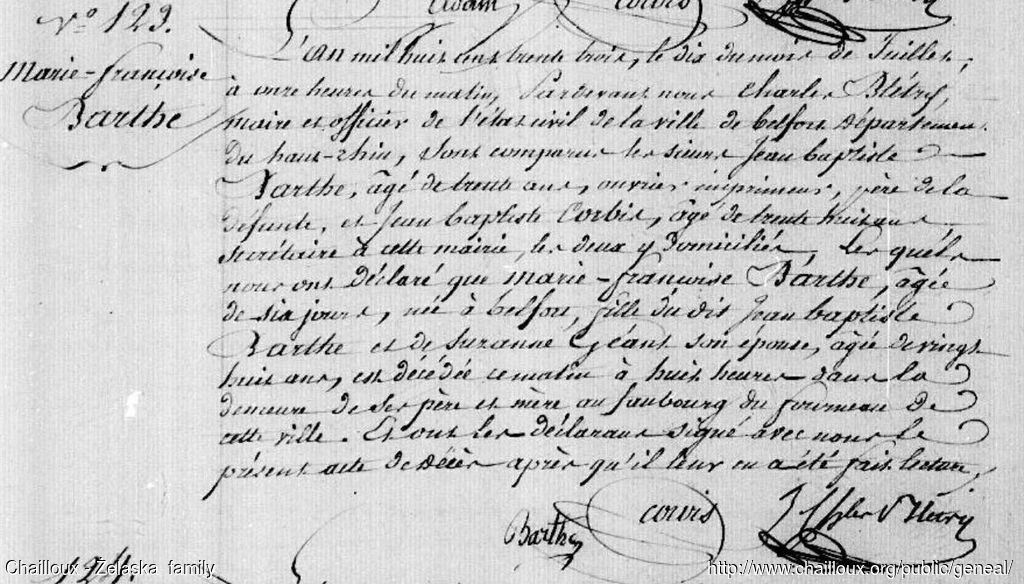 Adam Corbis
N° 123.
Marie-françoise
Barthe
L'An mil huit cent trente trois, le dix du mois de Juillet,
à onze heures du matin, Pardevant nous Charles Blétry,
maire et officier de l'état civil de la ville de belfort Département
du haut-rhin, sont comparus les sieurs Jean baptiste
Barthe, âgé de trente ans, ouvrier imprimeur, père de la
défunte, et Jean baptiste Corbis, âgé de trente huit ans
secrétaire à cette mairie, les deux y domiciliés, les quels
nous ont déclaré que marie-françoise Barthe, âgée
de six jours, née à belfort, fille du dit Jean baptiste
Barthe et de Suzanne Géant son épouse, âgée de vingt
huit ans, est décédée ce matin à huit heures dans la
demeure de ses père et mère au faubourg du fourneau de
cette ville. Et ont les déclarans signé avec nous le
présent acte de décès après qu'il leur en a été fait lecture,
Barthe Corbis
124.
Chailloux - Zelaska family
http://www.chailloux.org/public/geneal/